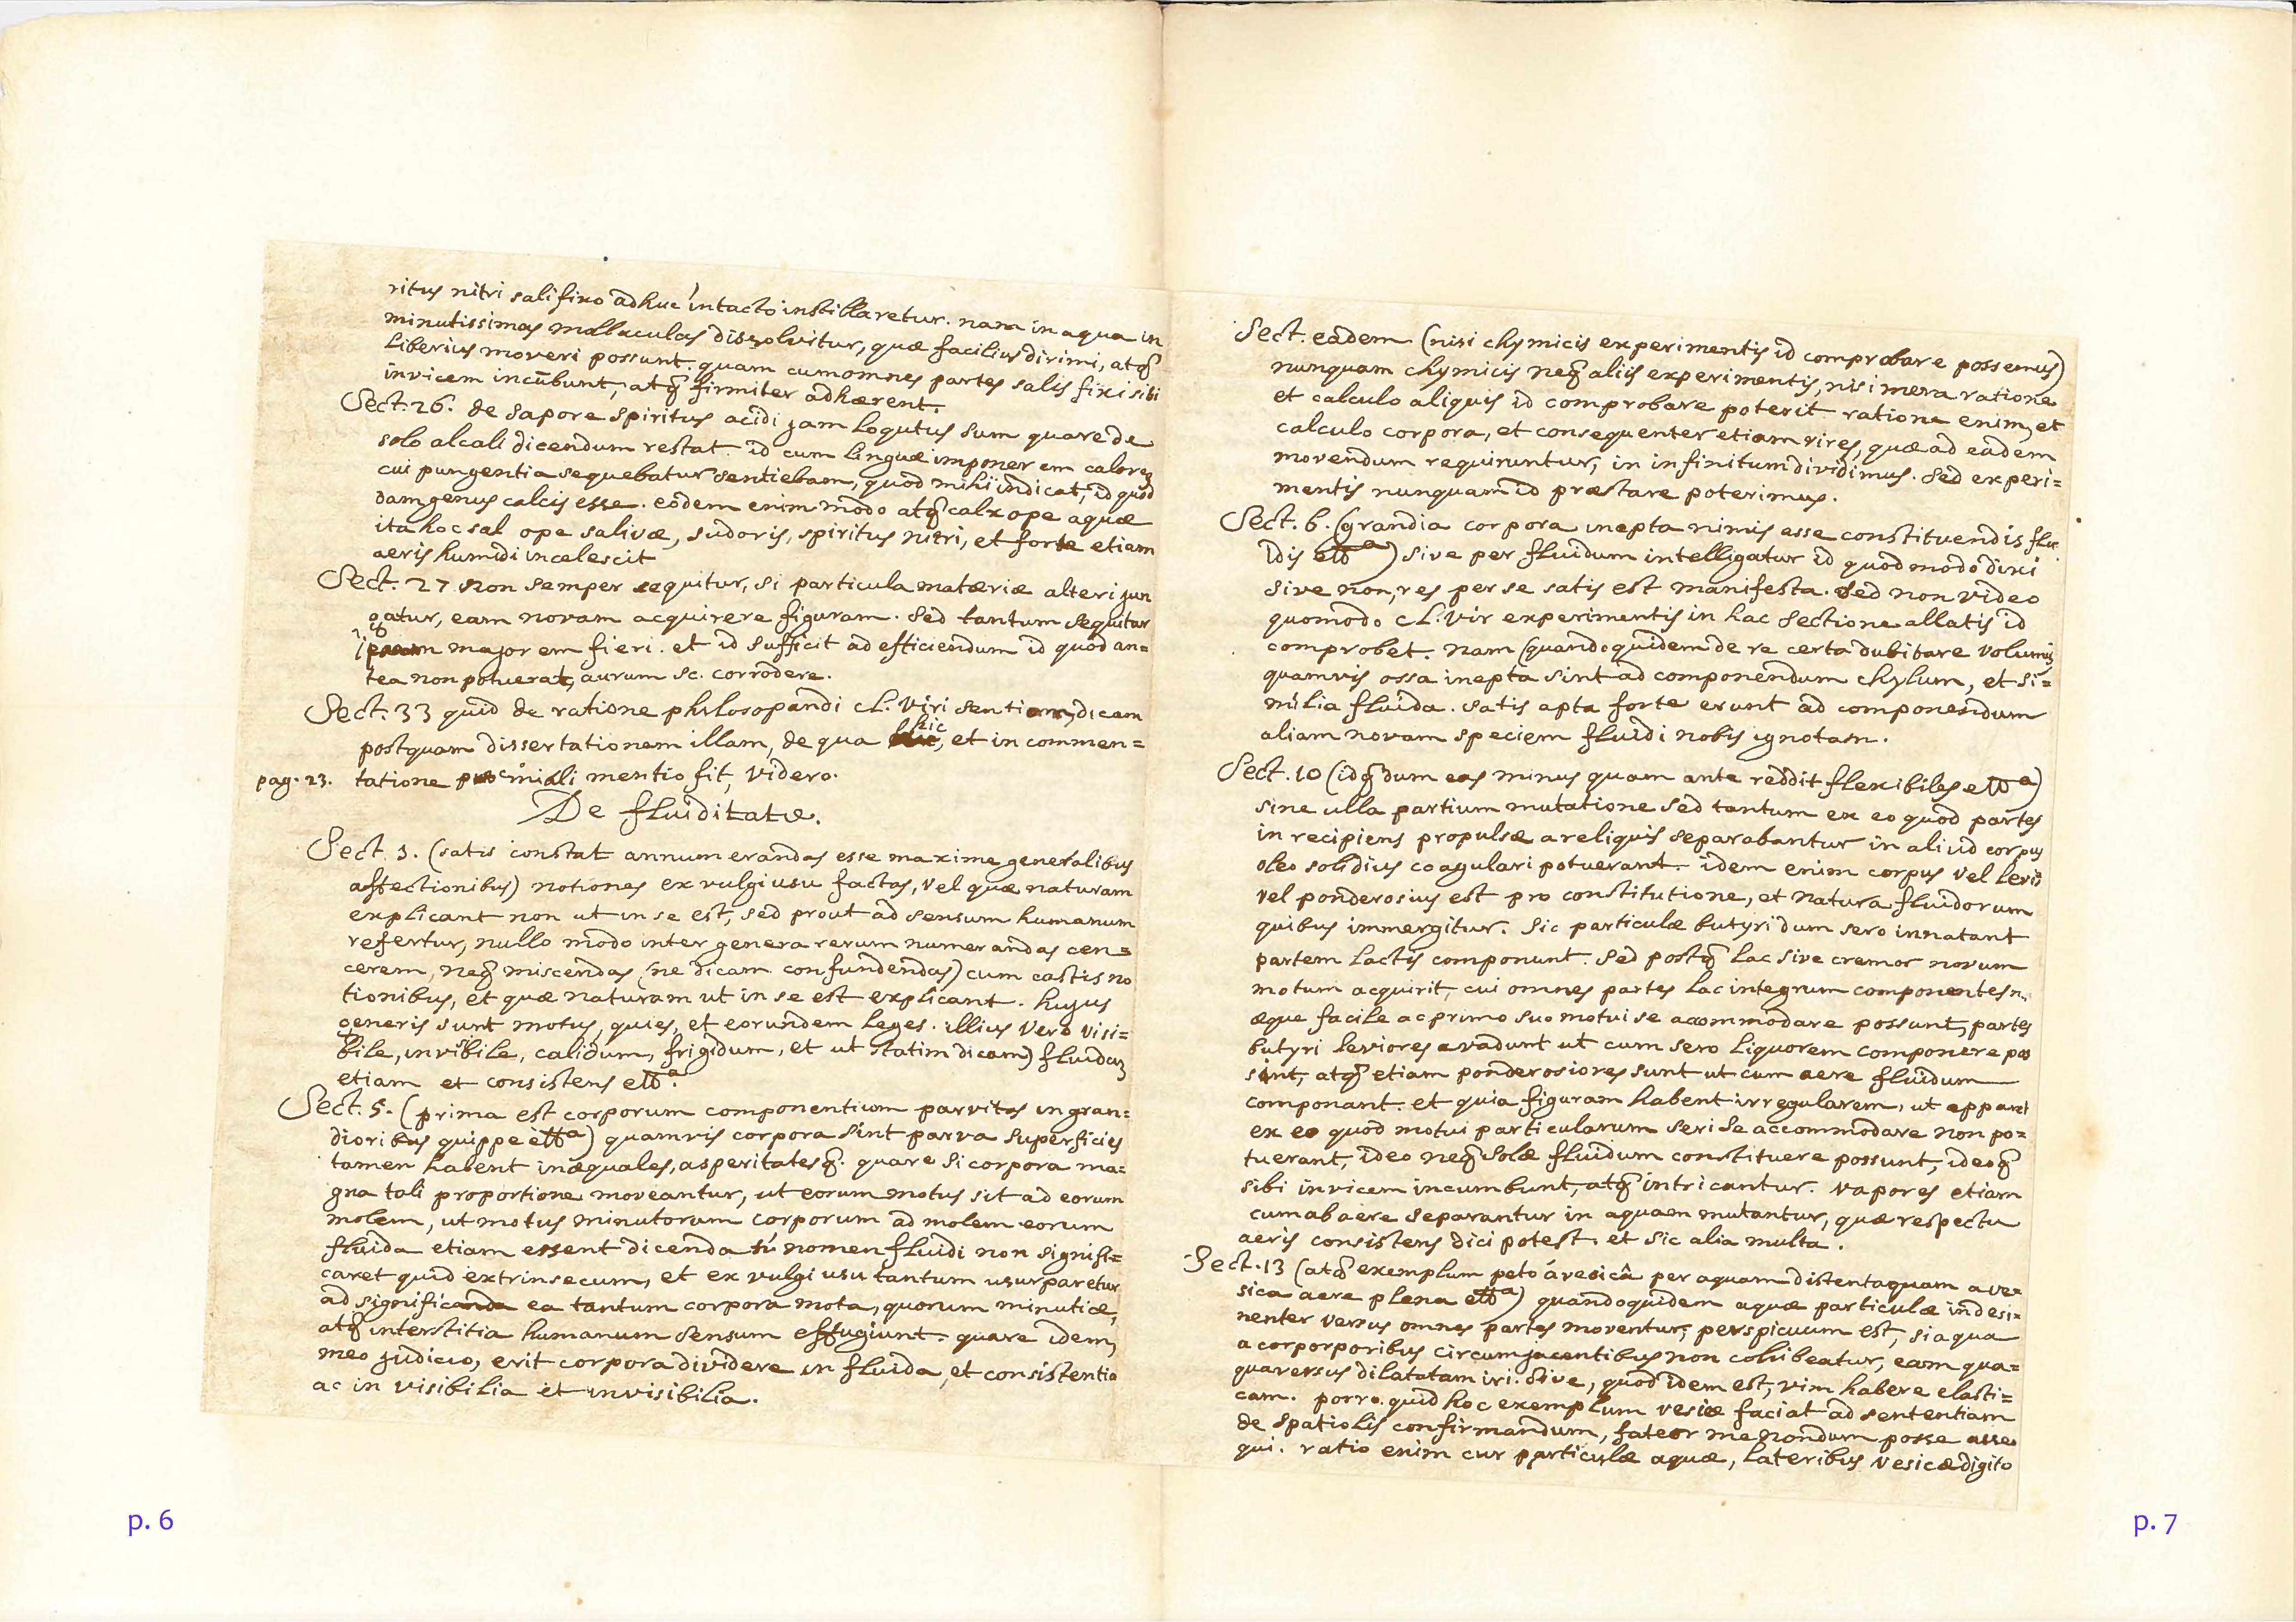 ritus nitri sali fixo adhuc intacto instillaretur. nam in aqua in
minutissimas mollæculas dissolvitur, quæ facilius dirimi, atq
liberius moveri possunt. quam cum omnes partes salis fixi sibi
invicem incūbunt, atq firmiter adhærent.
Sect. 26. de sapore spiritus acidi jam loqutus sum quare de
solo alcali dicendum restat. id cum linguæ imponerem calorem
cui pungentia sequebatur sentiebam, quod mihi indicat, id quod
dam genus calcis esse. eodem enim modo atq calx ope aquæ
ita hoc sal ope salivæ, sudoris, spiritus nitri, et forte etiam
aeris humidi incalescit
Sect. 27 non semper sequitur, si particula matæriæ alteri jun
gatur, eam novam acquirere figuram. sed tantum sequitur
ipsam majorem fieri. et id sufficit ad efficiendum id quod an=
tea non potuerat, aurum sc. corrodere.
Sect. 33 quid de ratione philosopandi cl. Viri sentiam, dicam
hic
postquam dissertationem illam, de qua et in commen=
pag. 23. tatione proœmiali mentio fit, videro.
De fluiditate.
Sect. 1. (satis constat annumerandas esse maxime generalibus
affectionibus) notiones ex vulgi usu factas, vel quæ naturam
explicant non ut in se est, sed prout ad sensum humanum
refertur, nullo modo inter genera rerum numerandas cen=
cerem, neq miscendas (ne dicam confundendas) cum castis no
tionibus, et quæ naturam ut in se est explicant. hujus
generis sunt motus, quies, et eorundem leges. illius vero visi=
bile, invisibile, calidum, frigidum, et ut statim dicam) fluidum
etiam et consistens etta.
Sect. 5. (prima est corporum componentium parvitas in gran=
dioribus quippe etta) quamvis corpora sint parva superficies
tamen habent inæquales, asperitatesq. quare si corpora ma=
gna tali proportione moveantur, ut eorum motus sit ad eorum
molem, ut motus minutorum corporum ad molem eorum
fluida etiam essent dicenda si nomen fluidi non signifi=
caret quid extrinsecum, et ex vulgi usu tantum usurparetur
ad significanda ea tantum corpora mota, quorum minutiæ,
atq interstitia humanum sensum effugiunt. quare idem,
meo judicio, erit corpora dividere in fluida, et consistentia
ac in visibilia et invisibilia.
p. 6
Sect. eadem (nisi chymicis experimentis id comprobare possemus)
nunquam chymicis neq aliis experimentis, nisi mera ratione
et calculo aliquis id comprobare poterit ratione enim, et
calculo corpora, et consequenter etiam vires, quæ ad eadem
movendum requiruntur, in infinitum dividimus. sed experi=
mentis nunquam id præstare poterimus.
Sect. 6. (grandia corpora inepta nimis esse constituendis flu
idis etta) sive per fluidum intelligatur id quod modo dixi
sive non, res per se satis est manifesta. sed non video
quomodo cl. vir experimentis in hac sectione allatis id
comprobet. nam (quandoquidem de re certa dubitare volumus
quamvis ossa inepta sint ad componendum chylum, et si=
milia fluida. satis apta forte erunt ad componendum
aliam novam speciem fluidi nobis ignotam.
Sect. 10 (idq dum eas minus quam ante reddit flexibiles etta)
sine ulla partium mutatione sed tantum ex eo quod partes
in recipiens propulsæ a reliquis separabantur in aliud corpus
oleo solidius coagulari potuerant. idem enim corpus vel levis
vel ponderosius est pro constitutione, et natura fluidorum
quibus immergitur. sic particulæ butyri dum sero innatant
partem lactis componunt. sed postq lac sive cremor novum
motum acquirit, cui omnes partes lac integrum componentes n.
æque facile ac primo suo motui se accommodare possunt, partes
butyri leviores evadunt ut cum sero liquorem componere pos
sint, atq etiam ponderosiores sunt ut cum aere fluidum
componant. et quia figuram habent irregularem, ut apparet
ex eo quod motui particularum seri se accommodare non po=
tuerant, ideo neq solæ fluidum constituere possunt, ideoq
sibi invicem incumbunt, atq intricantur. vapores etiam
cum ab aëre separantur in aquam mutantur, quæ respectu
aeris consistens dici potest. et sic alia multa.
Sect. 13 (atq exemplum peto á vesicâ per aquam distenta quam a ve=
sica aere plena etta) quandoquidem aquæ particulæ indesi=
nenter versus omnes partes moventur, perspicuum est, si aqua
a corporporibus circumjacentibus non cohibeatur, eam qua=
quaversus dilatatam iri. sive, quod idem est, vim habere elasti=
cam. porro. quid hoc exemplum vesicæ faciat ad sententiam
de spatiolis confirmandum, fateor me nondum posse asse
qui. ratio enim cur particulæ aquæ, lateribus vesicæ digito
p. 7